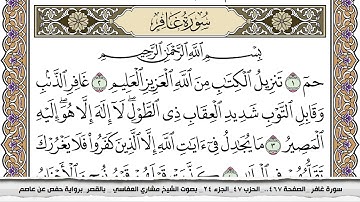 سُورَةُ غَافِرٍ
بِسْمِ اللَّهِ الرَّحْمَٰنِ الرَّحِيمِ
حمٓ ١ تَنزِيلُ الْكِتَابِ مِنَ اللَّهِ الْعَزِيزِ الْعَلِيمِ ٢ غَافِرِ الذَّنبِ
وَقَابِلِ التَّوْبِ شَدِيدِ الْعِقَابِ ذِي الطَّوْلِ لَا إِلَٰهَ إِلَّا هُوَ إِلَيْهِ
الْمَصِيرُ ٣ مَا يُجَادِلُ فِي آيَاتِ اللَّهِ إِلَّا الَّذِينَ كَفَرُوا فَلَا يَغْرُرْكَ
سورة غافر _ الصفحة ٤٦٧.. الحزب ٤٧ _ الجزء ٢٤ _ بصوت الشيخ مشاري العفاسي .. بالقصر _ برواية حفص عن عاصم